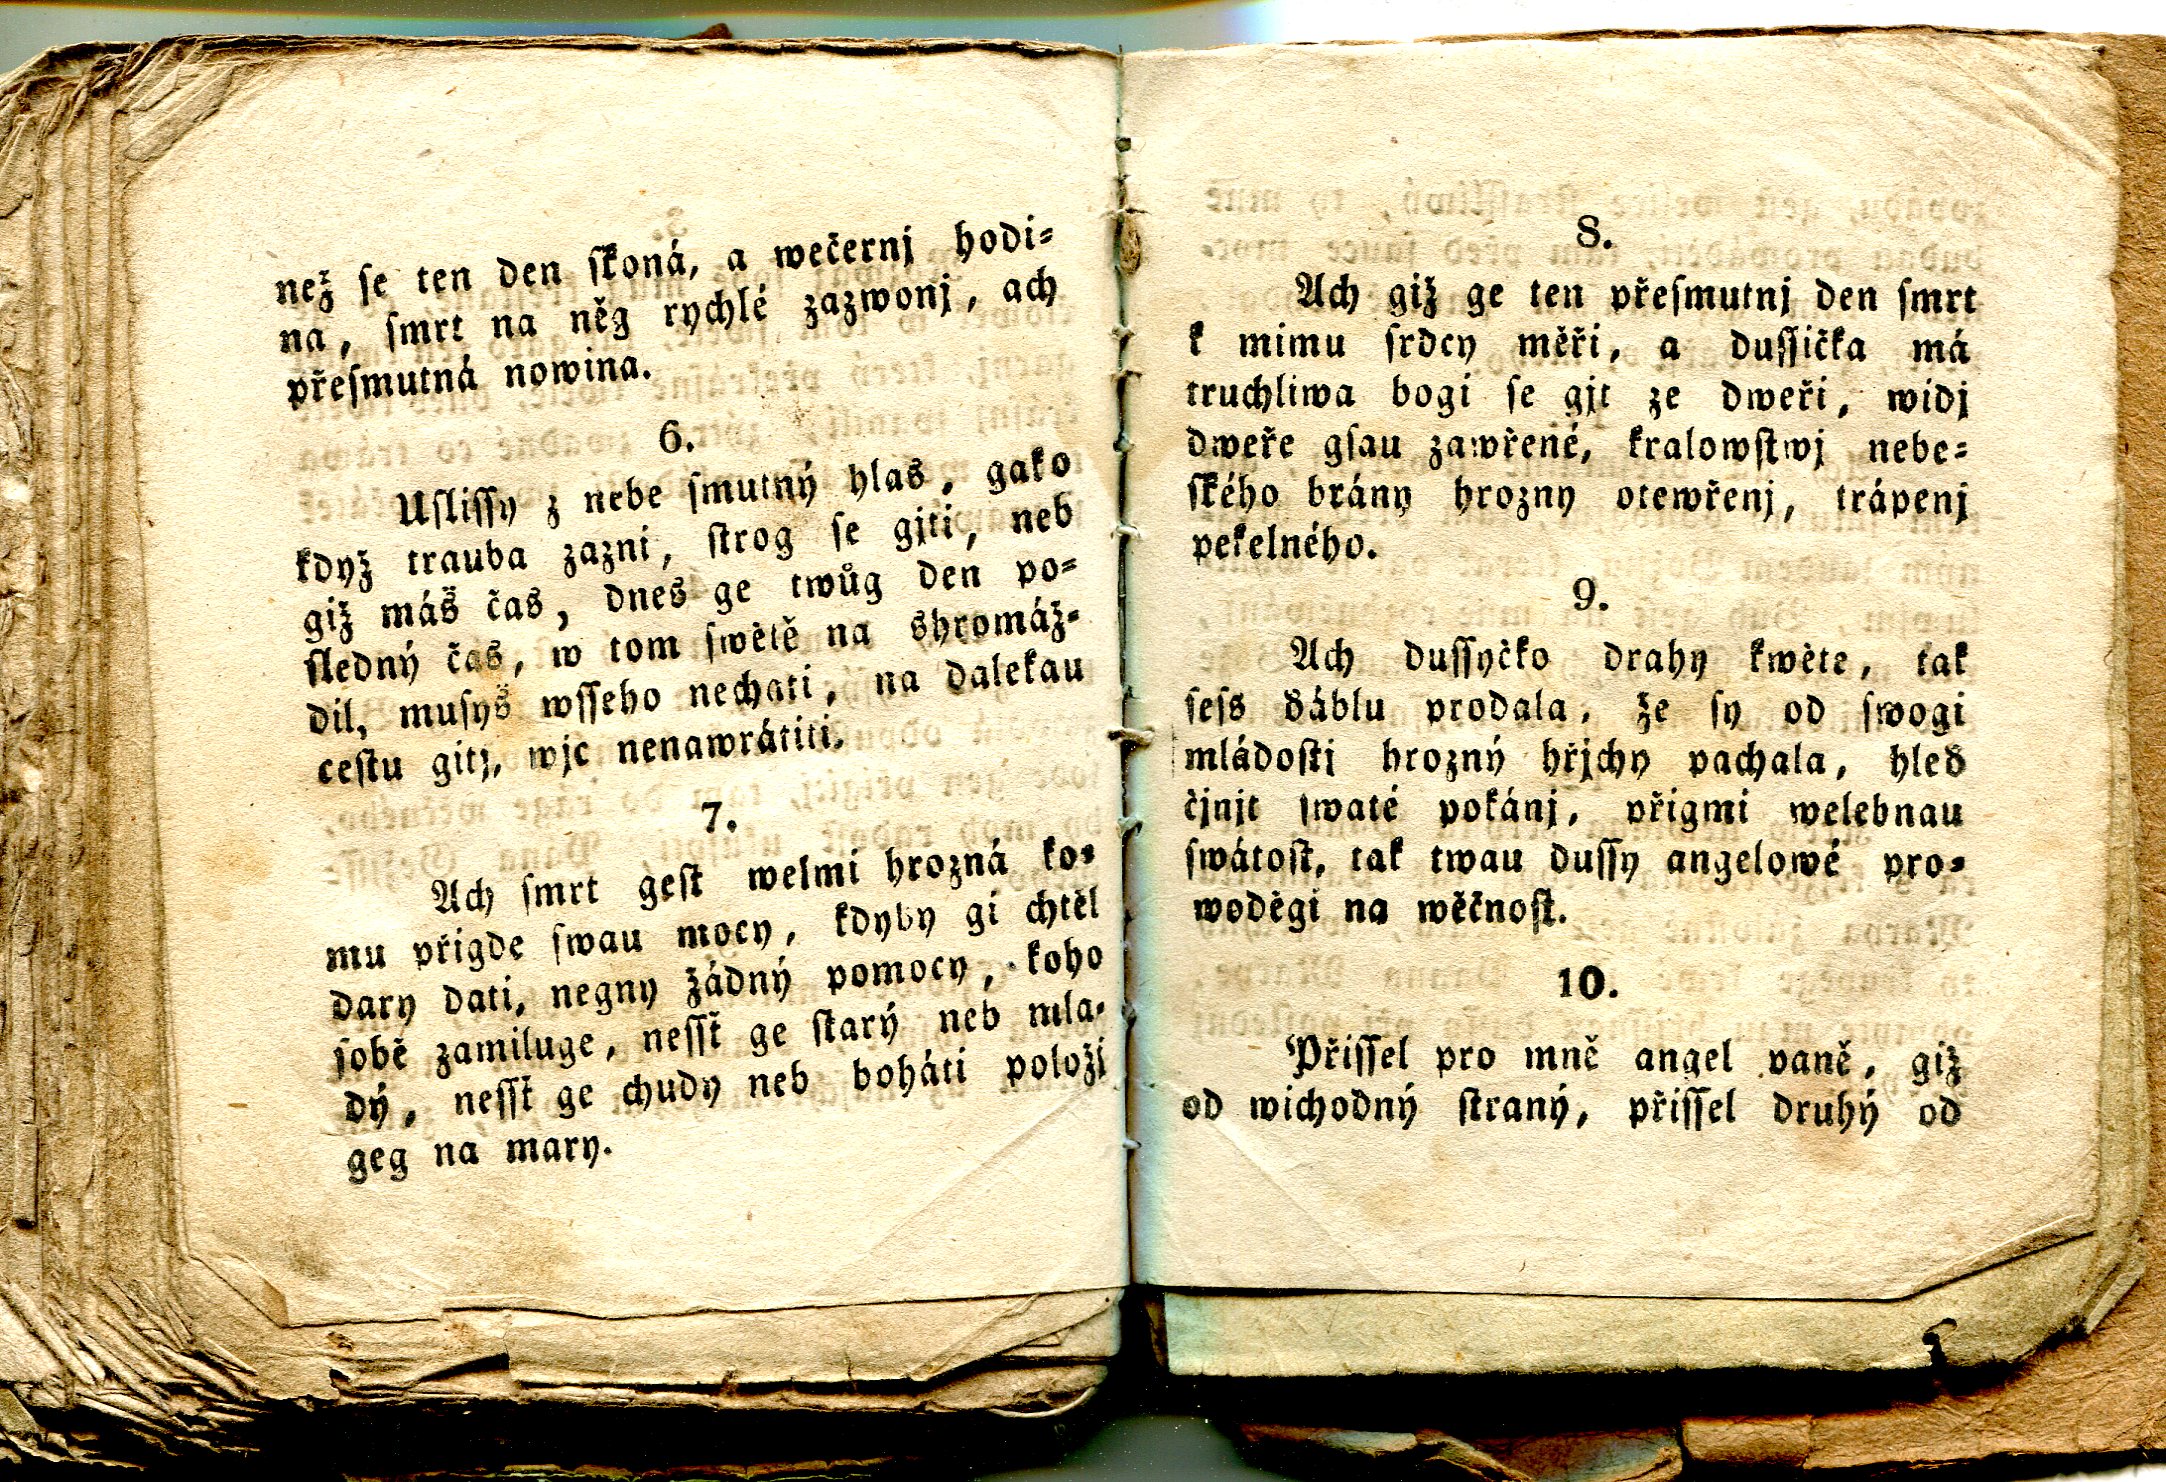 než se ten den skoná, a wečernj hodi=
na, smrt na něg rychlé zazwonj, ach
přesmutná nowina.
6.
Uslissy z nebe smutný hlas, gako
když trauba zazni, strog se gjti, neb
giž máš čas, dnes ge twůg den po=
sledný čas, w tom swětě na shromáž=
dil, musyš wsseho nechati, na dalekau
cestu gitj, wjc nenawrátiti.
7.
Ach smrt gest welmi hrozná ko=
mu přigde swau mocy, kdyby gi chtěl
dary dati, negny žádný pomocy, koho
sobě zamiluge, nessť ge starý neb mla=
dý, nessť ge chudy neb boháti položi
geg na mary.
8.
Ach giž ge ten přesmutnj den smrt
k mimu srdcy měři, a dussička má
truchliwa bogi se gjt ze dweři, widj
dweře gsau zawřené, kralowstwj nebe=
ského brány hrozny otewřenj, trápenj
pekelného.
9.
Ach dussyčko drahy kwěte, tak
sess ďáblu prodala, že sy od swogi
mládosti hrozný hřjchy pachala, hleď
čjnjt swaté pokánj, přigmi welebnau
swátost, tak twau dussy angelowé pro=
woděgi na wěčnost.
10.
Přissel pro mně angel paně, giž
od wichodný straný, přissel druhý od